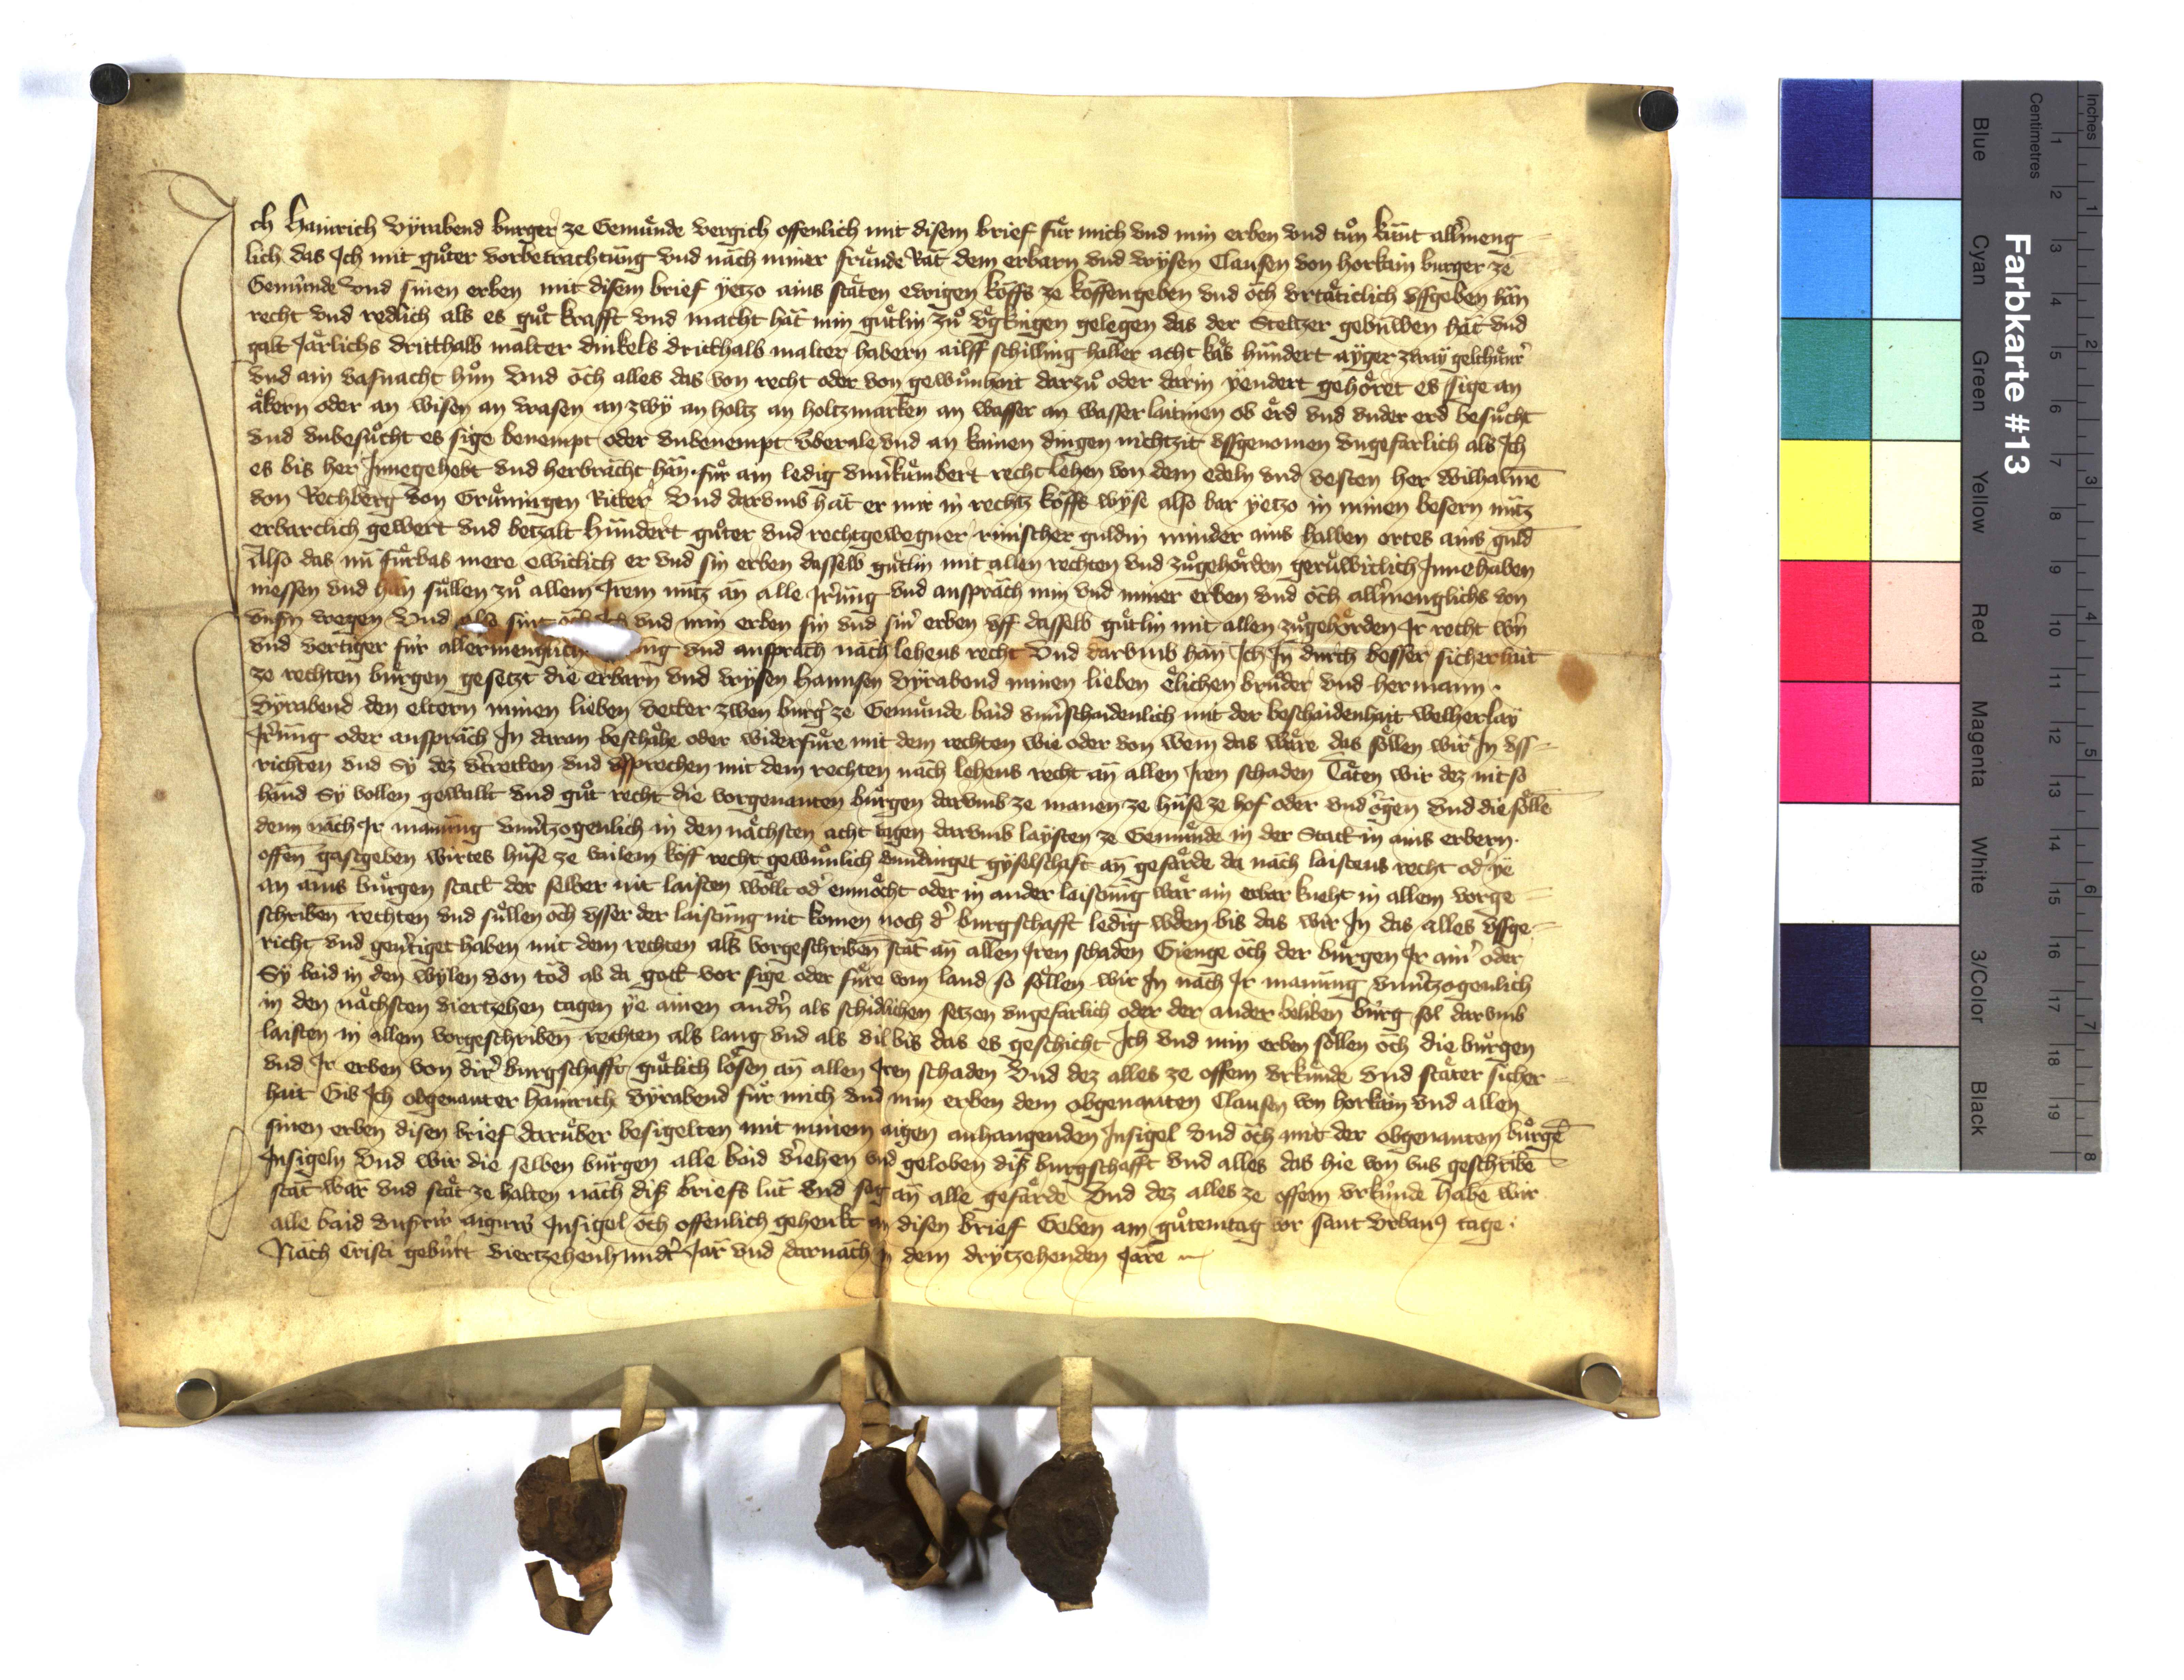 Ich Hainrich vyrabend burger ze Gemu̇nde vergich offenlich mit disem brief fu̇r mich vnd min erben vnd tu̇n kunt allermeng
lich das Ich mit gůter vorbetrachtung vnd nāch miner fru̇nde Rāt dem erbarn vnd wysen Clausen von horkain burger ze
Gemu̇nde vnd sinen erben mit disem brief yetzo ains stäten ewigen kōffs ze kōffengeben vnd ōch vrtäticlich vffgeben hān
recht vnd redlich als es gůt krafft vnd macht hāt min gu̇tlin zů gelegen das der Steltzer gebuwen hāt vnd
galt Järlichs dritthalb malter dinkels dritthalb malter habern ailff schilling haller acht käs hundert ayger zway
vnd ain vasnacht hůn vnd ōch alles das von recht oder von gewonhait darzů oder darin yendert gehöret es sige an
äkern oder an wisen an wasen an zwy an holtz an holtzmarken an wasser an wasser laitinen ob erd vnd vnder erd besůcht
vnd vnbesůcht es sige benempt oder vnbenempt v̇berale vnd an kainen dingen nichtzit vssgenomen vngefarlich als Ich
es bis her Innegehebt vnd herbrācht hān fu̇r ain ledig vnuerku̇mbert recht lehen von dem edeln vnd vesten her wilhalme
von Rechberg von Gru̇ningen Ritter vnd darvmb hāt er mir in rechtz kōffs wyse also bar yetzo in minen besern nutz
erbarclich gewert vnd betzalt hundert gůter vnd rechtgewegner rinischer guldin minder ains halben ortes ains guld
Also das nu fu̇rbas mere ewiclich er vnd sin erben dasselb gu̇tlin mit allen rechten vnd zůgehörden geru̇wiclich Innehaben
niessen vnd hān su̇llen zů allem Irem nutz ān alle Irrung vnd ansprāch min vnd miner erben vnd ōch allermenglichs von
vnsern wegen Vnd also sint ōch Ich vnd min erben sin vnd siner erben vff dasselb gu̇tlin mit allen zůgehörden Ir recht wern
vnd vertiger fu̇r allermenglich vnd ansprāch nāch lehens recht Vnd darvmb hān Ich In durch besser sicherhait
ze rechten bu̇rgen gesetzt die erbarn vnd wysen hannsen vyrabend minen lieben elichen brůder vnd hermann
vyrabend den eltern minen lieben vetter zwen burger ze Gemu̇nde baid vnuerschaidenlich mit der beschaidenhait welherlay
Irrung oder ansprāch In daran beschähe oder widerfu̇re mit dem rechten wie oder von wem das wäre das söllen wir In vss
richten vnd Sy dez vertretten vnd versprechen mit dem rechten nāch lehens recht ān allen Iren schaden Täten wir dez nit so
hānd Sy vollen gewallt vnd gůt recht die vorgenanten bu̇rgen darvmb ze manen ze huse ze hof oder vnder ōgen vnd die söllen
denn nāch Ir manung vnuertzogenlich in den nächsten acht tagen darvmb laysten ze Gemu̇nde in der Statt in ains erbern
offen gastgeben wirtes huse ze vailem kōff recht gewonlich vnuerdinget gyselschaft ān gefärde da nāch laistens recht oder ye
an ains bu̇rgen statt der selber nit laisten wöllt oder enmöcht oder in ander laistung wär ain erber kneht in allem vorge
schriben rechten vnd su̇llen ōch vsser der laistung nit komen noch der burgschafft ledig werden bis das wir In das alles vssge
richt vnd geuertiget haben mit dem rechten als vorgeschriben stāt ān allen Iren schaden Gienge ōch der bu̇rgen Ir ainer oder
Sy baid in den wylen von tōd ab da gott vor sige oder fu̇re vom land so söllen wir In nāch Ir manung vnuertzogenlich
in den nächsten viertzehen tagen ye ainen andern als schidlichen setzen vngefarlich oder der ander beliben bu̇rg sol darvmb
laisten in allem vorgeschriben rechten als lang vnd als vil bis das es geschicht Ich vnd min erben söllen ōch die bu̇rgen
vnd Ir erben von dirr burgschafft gu̇tlich lösen ān allen Iren schaden Vnd dez alles ze offem vrkunde vnd stäter sicher
hait Gib Ich obgenanter hainrich vyrabend fu̇r mich vnd min erben dem obgenanten Clausen von horkain vnd allen
sinen erben disen brief daru̇ber besigelten mit minem aigen anhangenden Insigel vnd ōch mit der obgenanten bu̇rgen
Insigeln Vnd wir die selben bu̇rgen alle baid veriehen vnd geloben diss burgschafft vnd alles das hie von vns geschriben
stāt wār vnd stät ze halten nāch diss briefs lut vnd sag ān alle gefärde Vnd dez alles ze offem vrku̇nde habe wir
alle baid vnsere aigene Insigel ōch offenlich gehenkt an disen brief Geben am gůtemtag vor sant vrbans tage
Nāch Cristi geburt viertzehenhundert Jār vnd darnāch in dem drytzehenden Jare
Farbkarte #13
Inches
Centimetres
1 2 3 4 5 6 7 8 9 10 11 12 13 14 15 16 17 18 19
1 2 3 4 5 6 7 8
Blue
Cyan
Green
Yellow
Red
Magenta
White
3/Color
Black